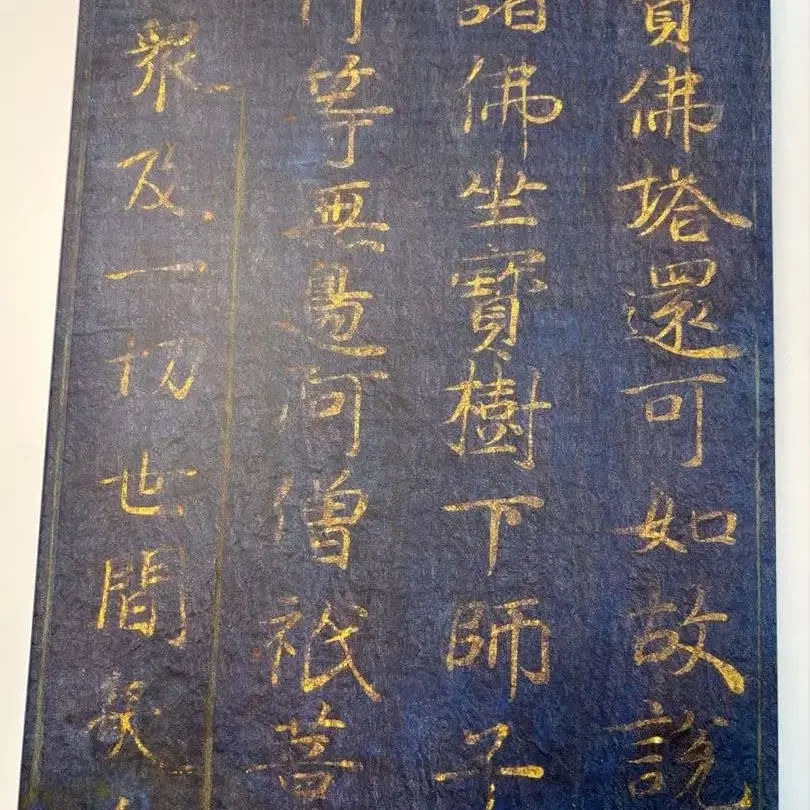 寶佛塔還可如故說
諸佛坐寶樹下師子
行等無邊阿僧祇菩
衆及一切世間天